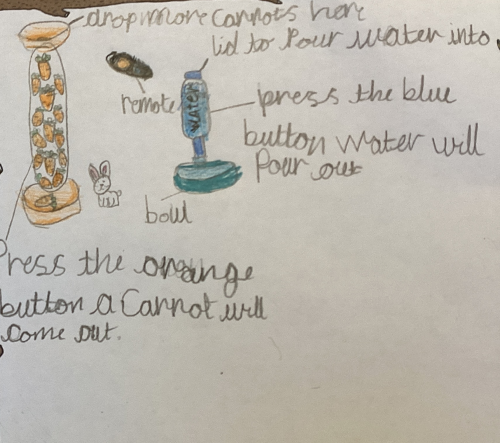 drop more Carrots here
lid to Pour water into
remote
WATER
press the blue
button Water will
Pour out
bowl
Press the orange
button a Carrot will
come out.